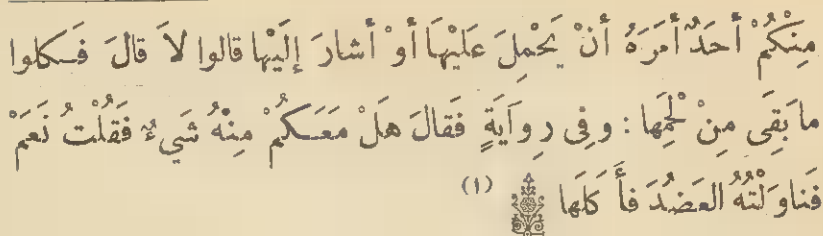 مِنْكُمْ أَحَدٌ أَمَرَهُ أَنْ يَحْمِلَ عَلَيْهَا أَوْ أَشارَ إِلَيْها قالوا لاَ قالَ فَكُلوا
ما بَقِىَ مِنْ لَحْمِها : وفِى رِوايَةٍ فَقالَ هَلْ مَعَكُمْ مِنْهُ شَيءٌ فَقُلْتُ نَعَمْ
فَناوَلْتُهُ العَضُدَ فأَ كَلَها (١)